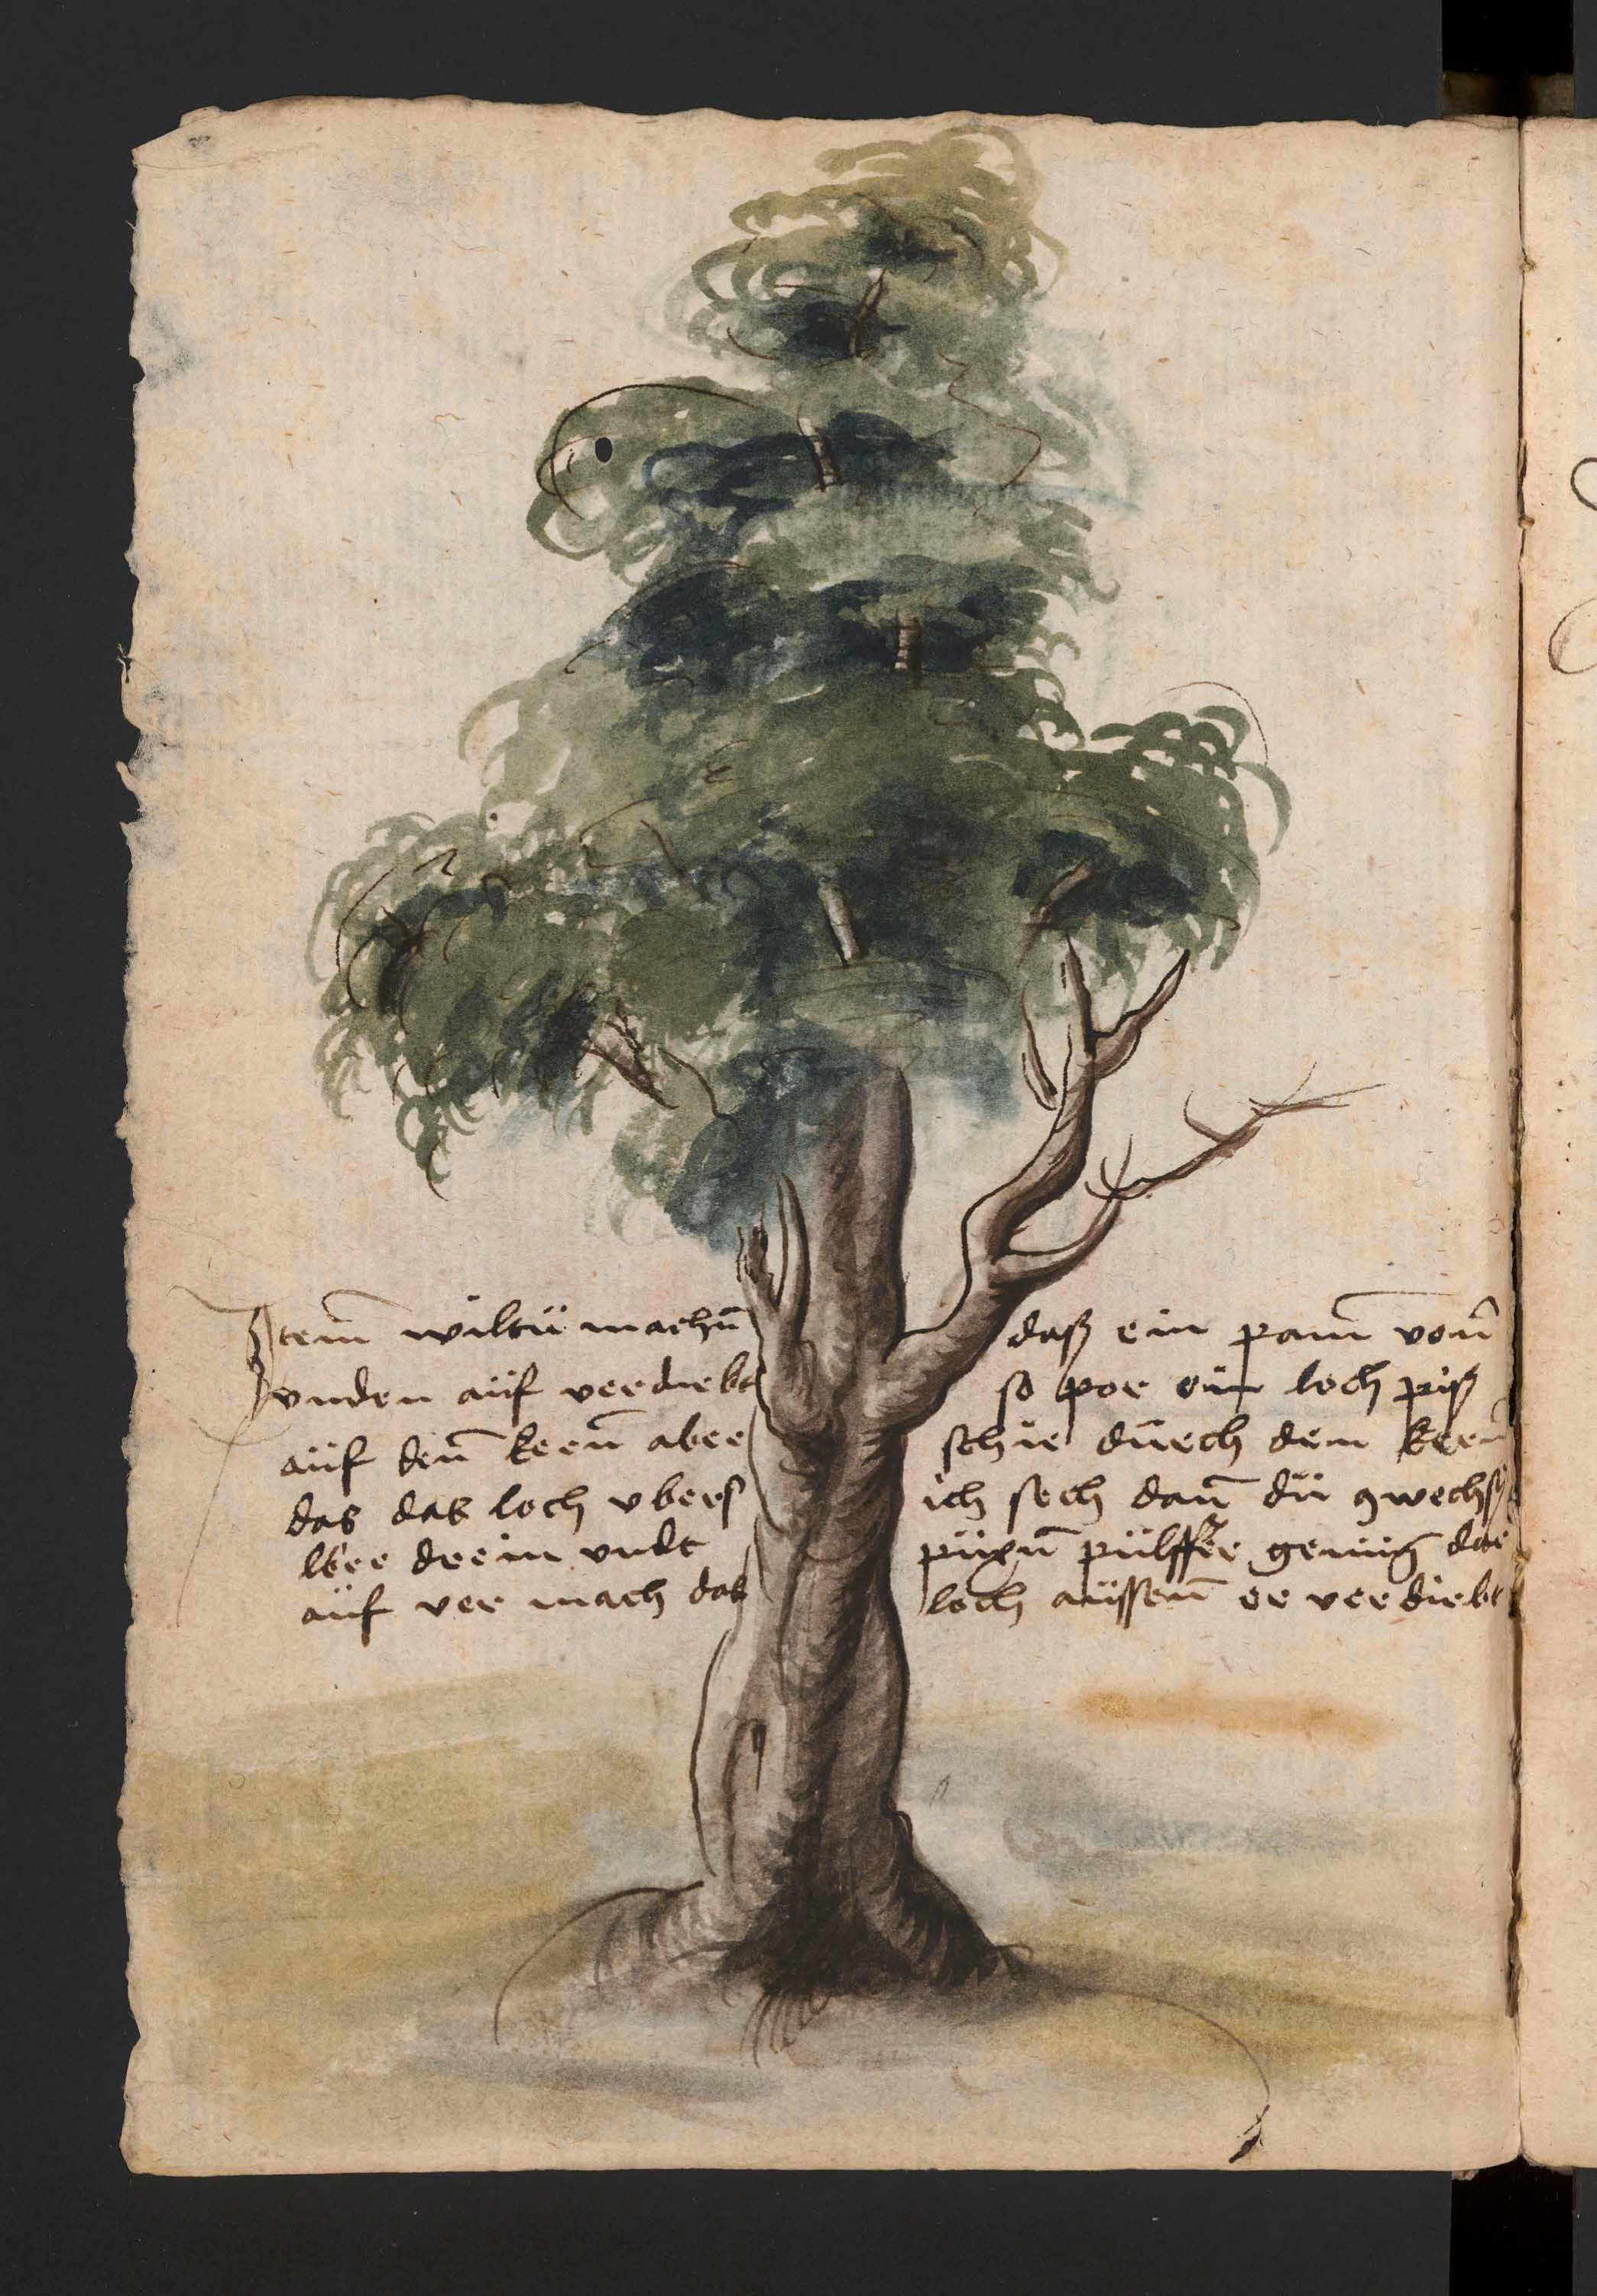 Item wiltü machn̄ daß ein pam̄ von̄
vnden aüf verdirbt so por ein loch piß
aüf den̄ kern̄ aber schir dürch den kern̄
das das loch vbers ich sech dan̄ dü
ler drein vndt püxn̄ pülffer genüg dar
aüf ver mach das loch aüssen̄ er verdirbt